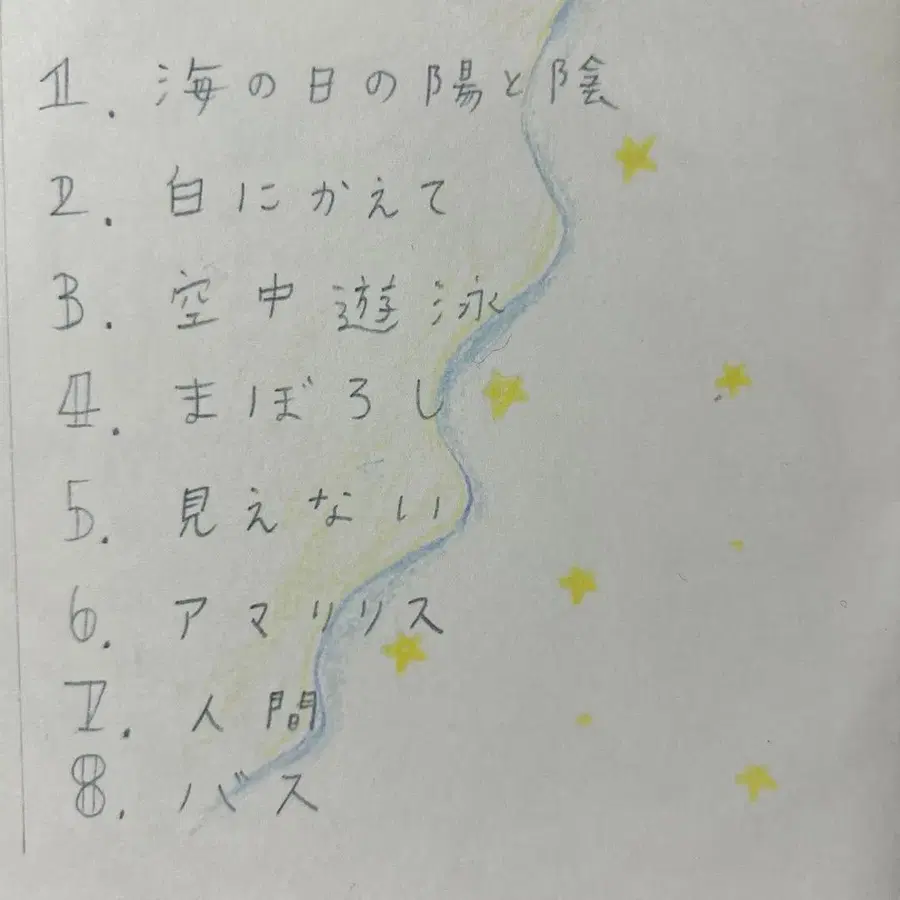 1. 海の日の陽と陰
2. 白にかえて
3. 空中遊泳
4. まぼろし
5. 見えない
6. アマリリス
7. 人間
8. バス